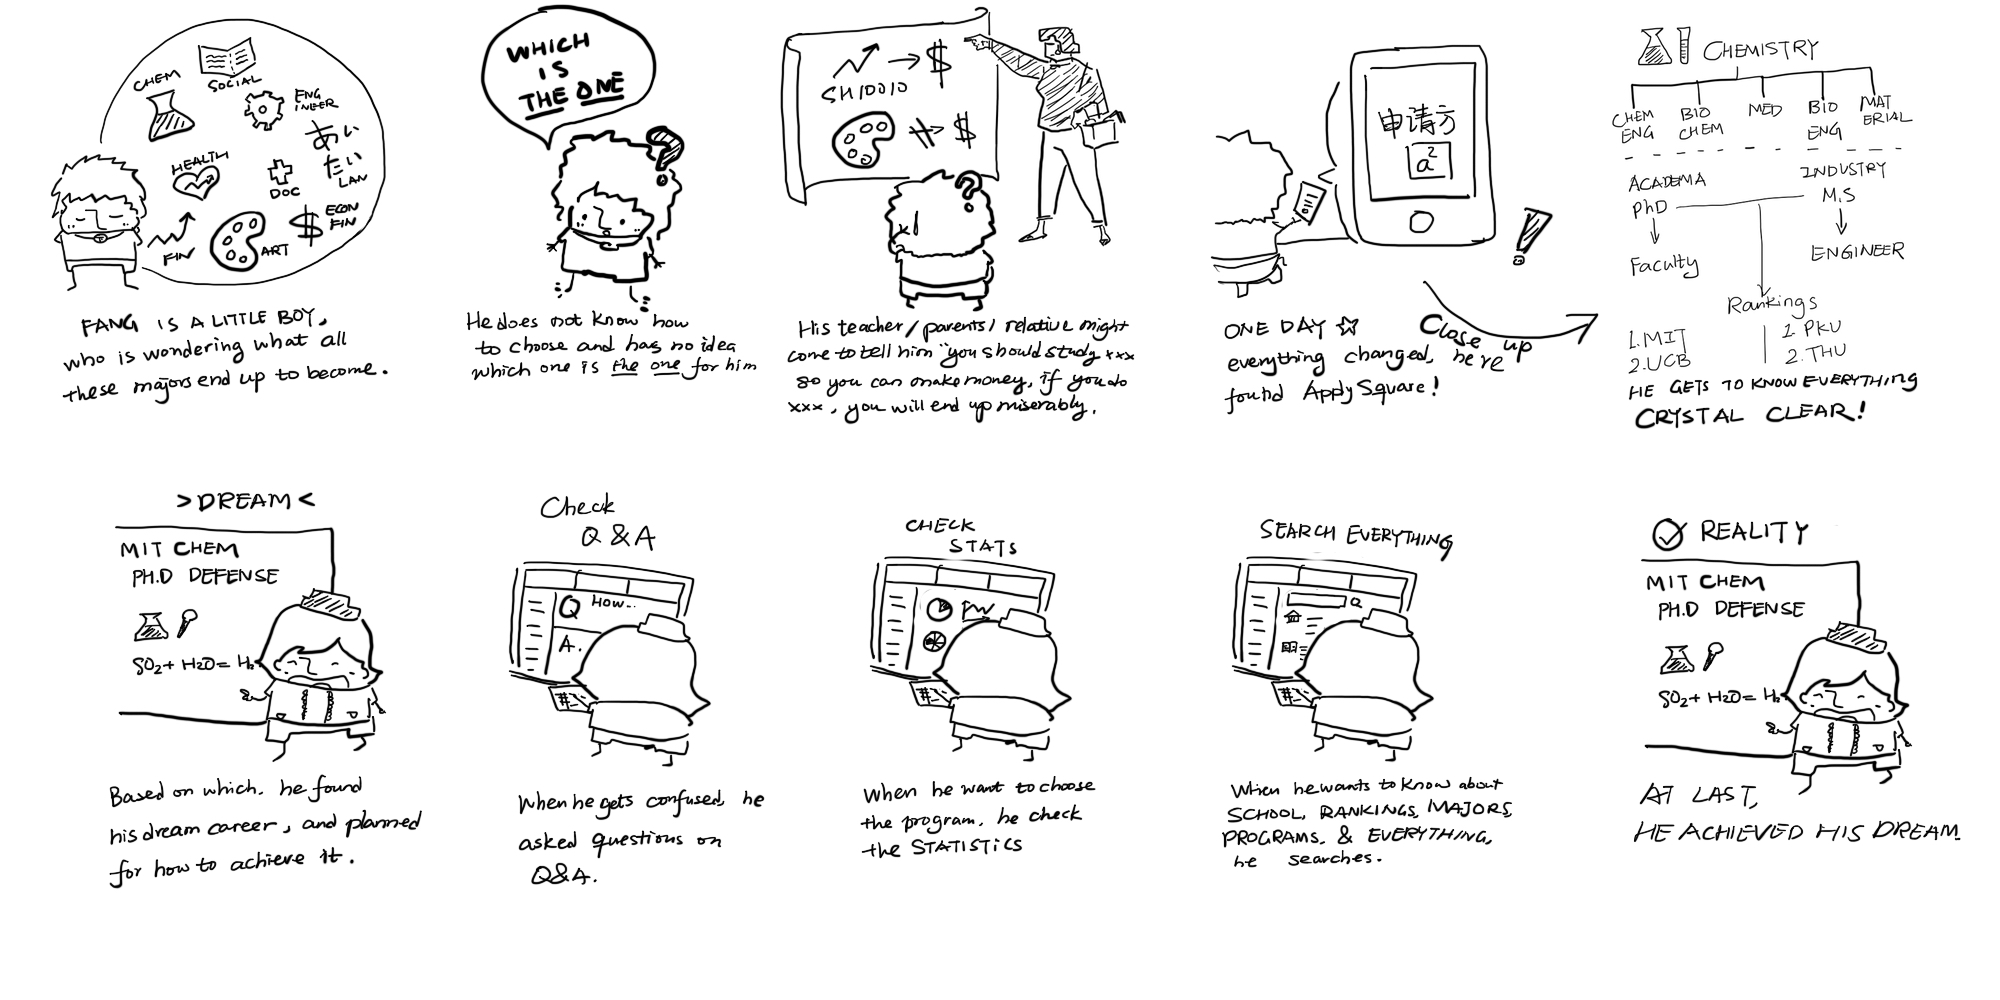 CHEM
SOCIAL
ENG
INEER
あい
たい
LAN
HEALTH
DOC
$ ECON
FIN
FIN
ART
FANG IS A LITTLE BOY,
who is wondering what all
these majors end up to become.
WHICH
IS
THE ONE
?
He does not know how
to choose and has no idea
which one is the one for him
→ $
SH10010
$
?
His teacher/parents/relative might
come to tell him "you should study xxx
so you can make money, if you do
xxx, you will end up miserably.
申请方
a²
!
ONE DAY ☆
everything changed, he
found ApplySquare!
Close up
here
CHEMISTRY
CHEM
ENG
BIO
CHEM
MED
BIO
ENG
MAT
ERIAL
ACADEMA
PhD
Faculty
INDUSTRY
M.S
ENGINEER
Rankings
1. MIT
2. UCB
1. PKU
2. THU
HE GETS TO KNOW EVERYTHING
CRYSTAL CLEAR!
>DREAM<
MIT CHEM
PH.D DEFENSE
SO2 + H2O = H2
Based on which, he found
his dream career, and planned
for how to achieve it.
Check
Q & A
Q HOW...
A.
When he gets confused, he
asked questions on
Q&A.
CHECK
STATS
When he want to choose
the program, he check
the STATISTICS
SEARCH EVERYTHING
When he wants to know about
SCHOOL, RANKINGS, MAJORS,
PROGRAMS, & EVERYTHING,
he searches.
REALITY
MIT CHEM
PH.D DEFENSE
SO2 + H2O = H2
AT LAST,
HE ACHIEVED HIS DREAM.